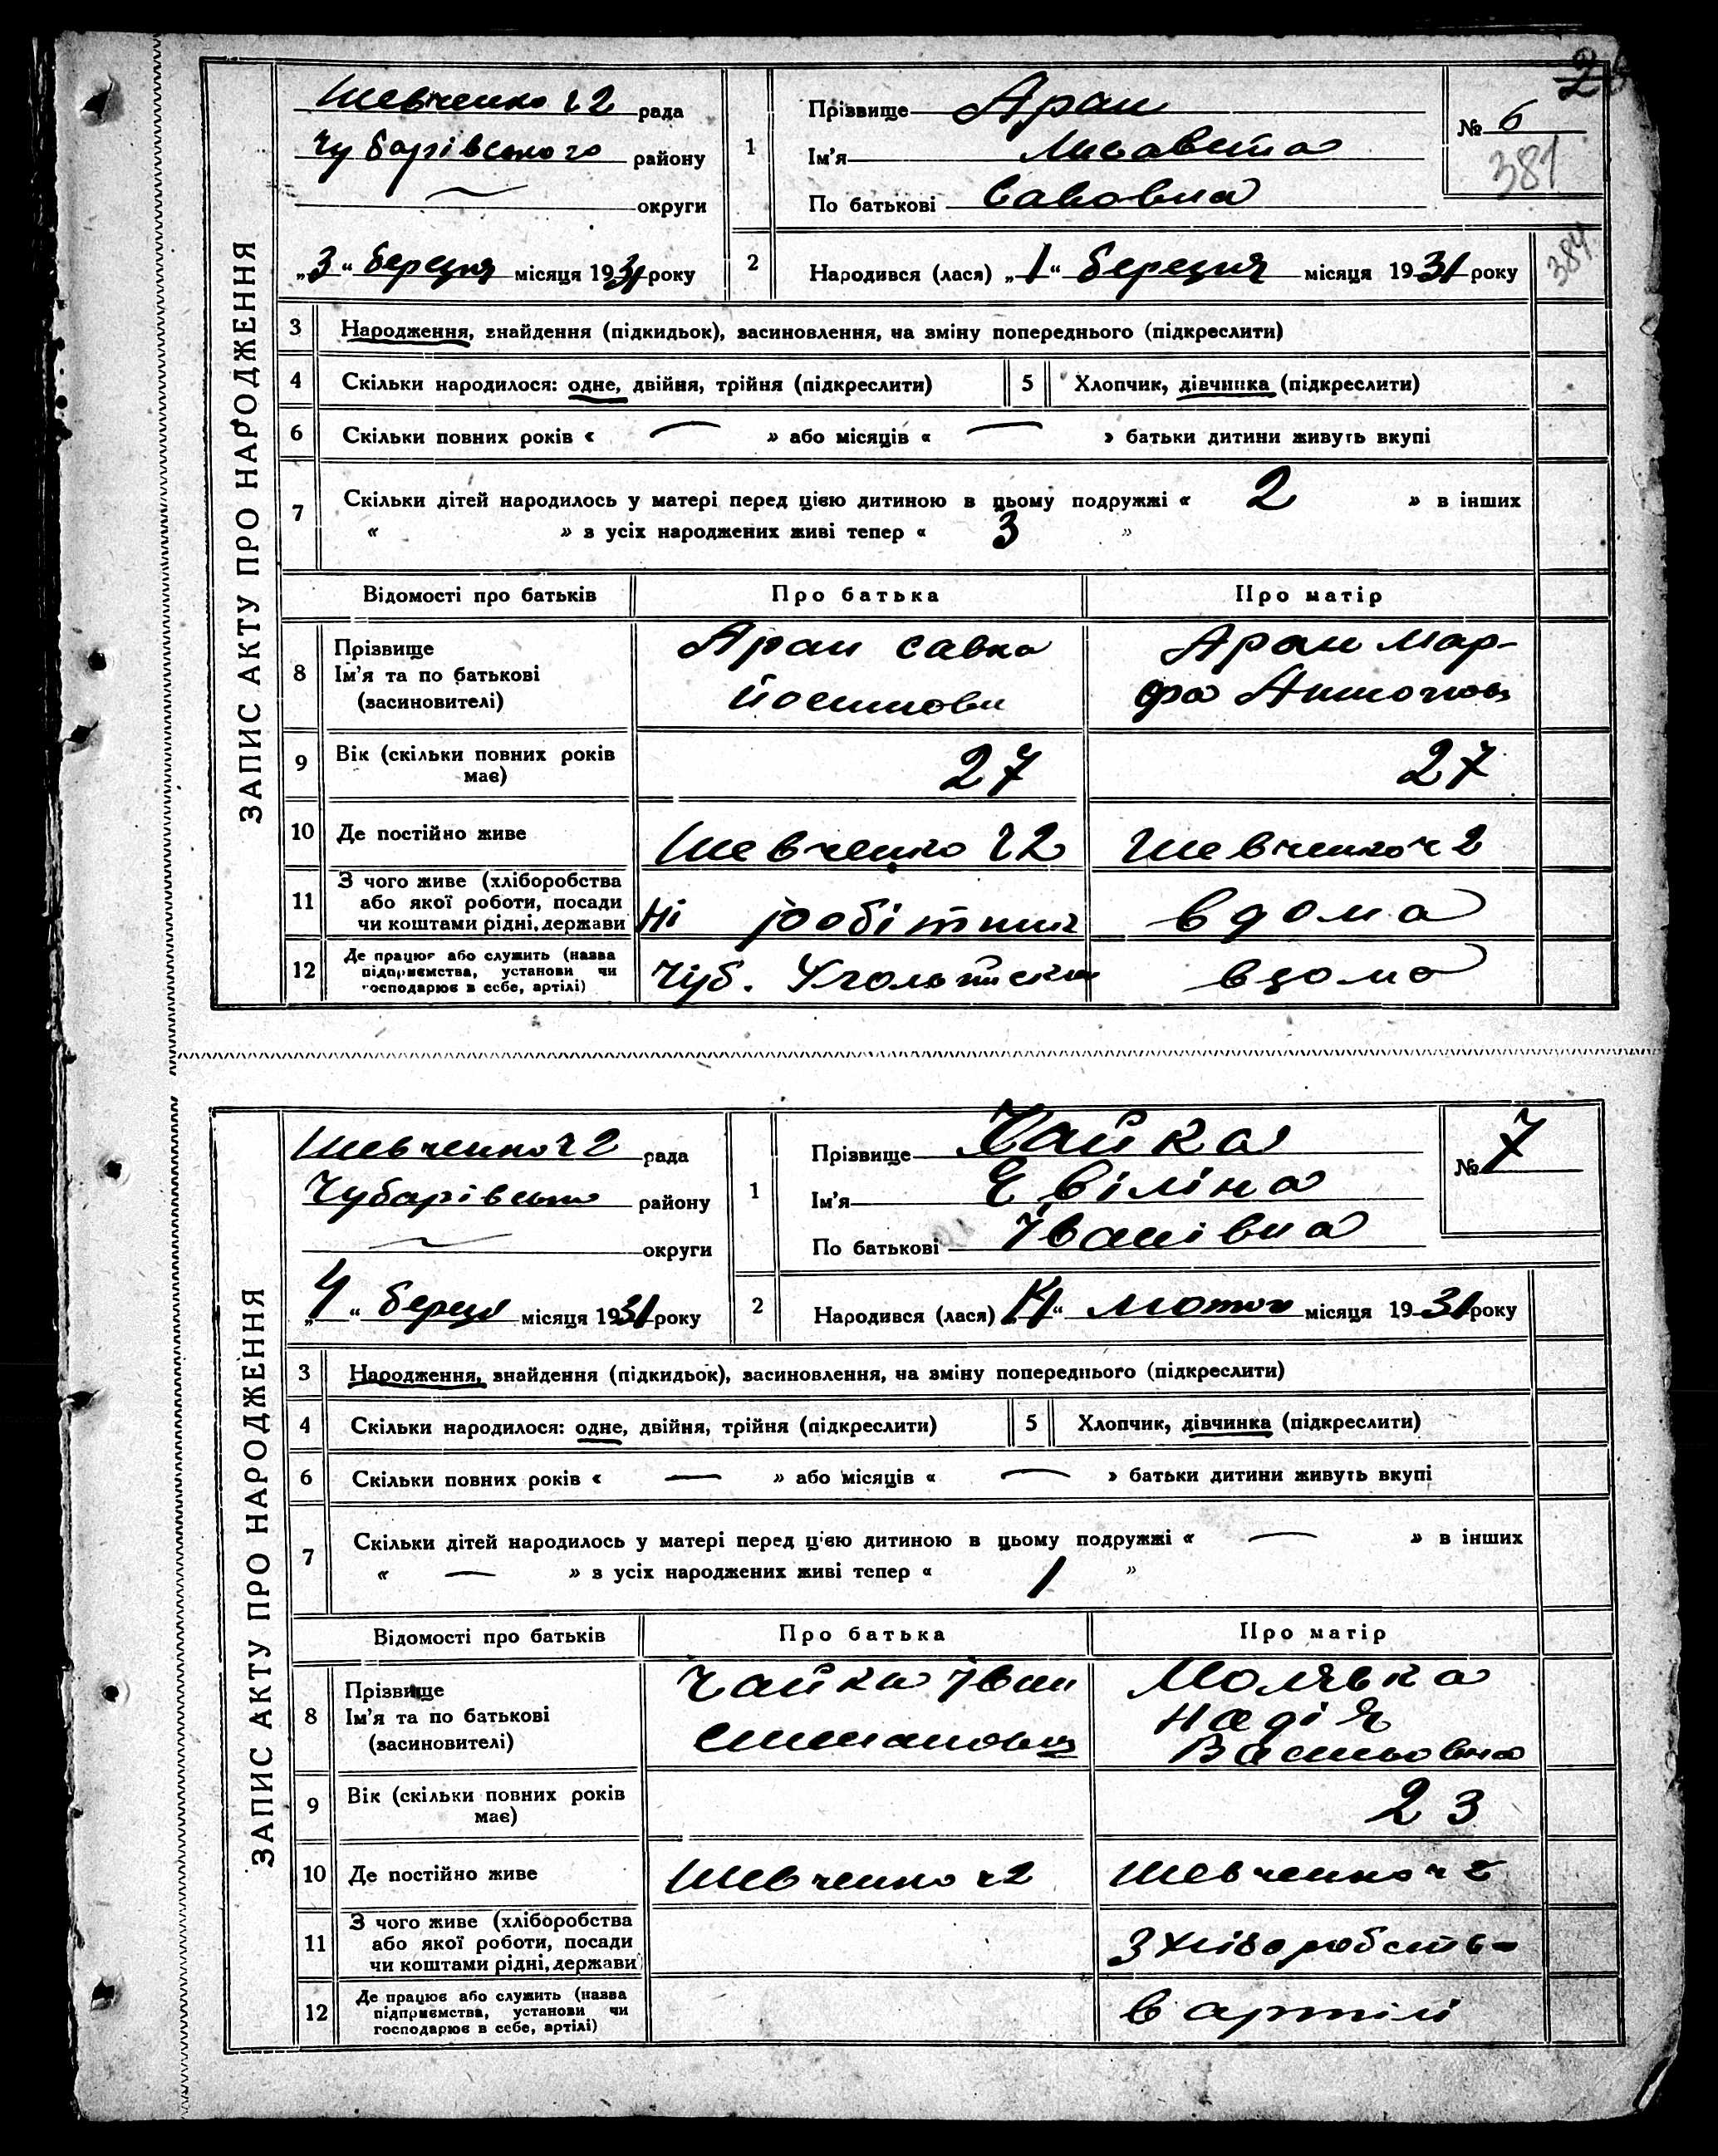 ЗАПИС АКТУ ПРО НАРОДЖЕННЯ
Шевченко ч2 рада
Чубарівського району
округи
„3“ березня місяця 1931 року
1
Прізвище Аран
Ім'я Лисавета
По батькові Савовна
№ 6
381
384
2 Народився (лася) „1“ березня місяця 1931 року
3 Народження, знайдення (підкидьок), засиновлення, на зміну попереднього (підкреслити)
4 Скільки народилося: одне, двійня, трійня (підкреслити) 5 Хлопчик, дівчинка (підкреслити)
6 Скільки повних років « — » або місяців « — » батьки дитини живуть вкупі
7 Скільки дітей народилось у матері перед цією дитиною в цьому подружжі « 2 » в інших
« » з усіх народжених живі тепер « 3 »
Відомості про батьків Про батька Про матір
8 Прізвище
Ім'я та по батькові
(засиновителі)
Аран Савка
Аран Мар-
фа
9 Вік (скільки повних років
має)
27 27
10 Де постійно живе Шевченко ч2 Шевченко ч2
11 З чого живе (хліборобства
або якої роботи, посади
чи коштами рідні, держави
Ні робітник вдома
12 Де працює або служить (назва
підприємства, установи чи
господарює в себе, артілі)
Чуб. вдома
ЗАПИС АКТУ ПРО НАРОДЖЕННЯ
Шевченко ч2 рада
Чубарівсько району
округи
„4“ березн місяця 1931 року
1
Прізвище Чайка
Ім'я Евіліна
По батькові Іванівна
№ 7
2 Народився (лася) лютого місяця 1931 року
3 Народження, знайдення (підкидьок), засиновлення, на зміну попереднього (підкреслити)
4 Скільки народилося: одне, двійня, трійня (підкреслити) 5 Хлопчик, дівчинка (підкреслити)
6 Скільки повних років « — » або місяців « — » батьки дитини живуть вкупі
7 Скільки дітей народилось у матері перед цією дитиною в цьому подружжі « — » в інших
« — » з усіх народжених живі тепер « 1 »
Відомості про батьків Про батька Про матір
8 Прізвище
Ім'я та по батькові
(засиновителі)
Чайка Іван
Молявка
Надія
Васильовна
9 Вік (скільки повних років
має)
23
10 Де постійно живе Шевченко ч2 Шевченко ч2
11 З чого живе (хліборобства
або якої роботи, посади
чи коштами рідні, держави
З хліборобств
12 Де працює або служить (назва
підприємства, установи чи
господарює в себе, артілі)
в артілі